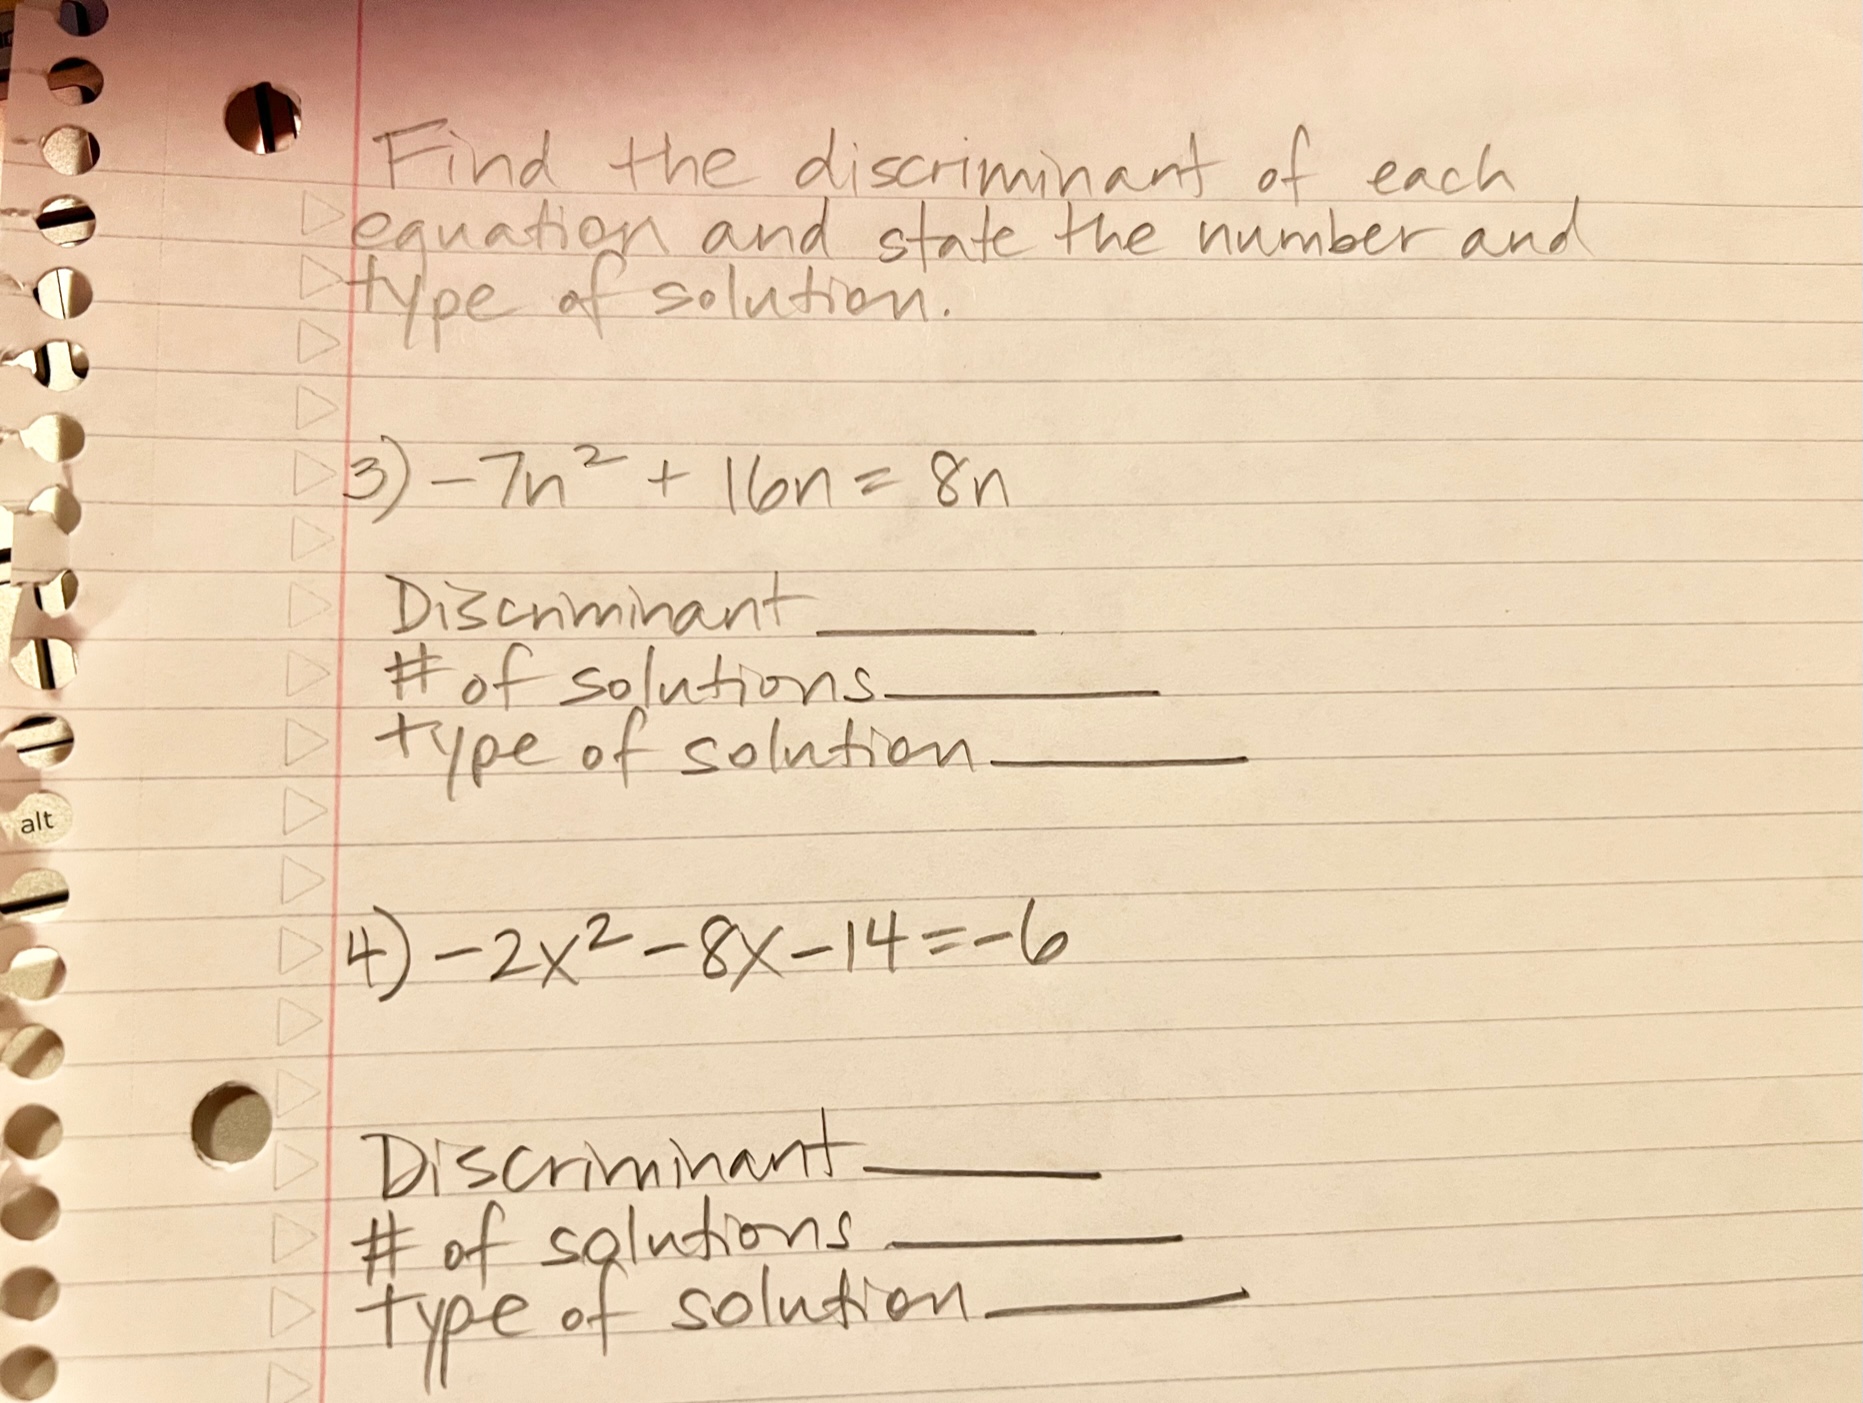 Find the discriminant of each
equation and state the number and
type of solution.
3) -7n² + 16n = 8n
Discriminant ______
# of solutions ______
type of solution ______
alt
4) -2x² - 8x - 14 = -6
Discriminant ______
# of solutions ______
type of solution ______